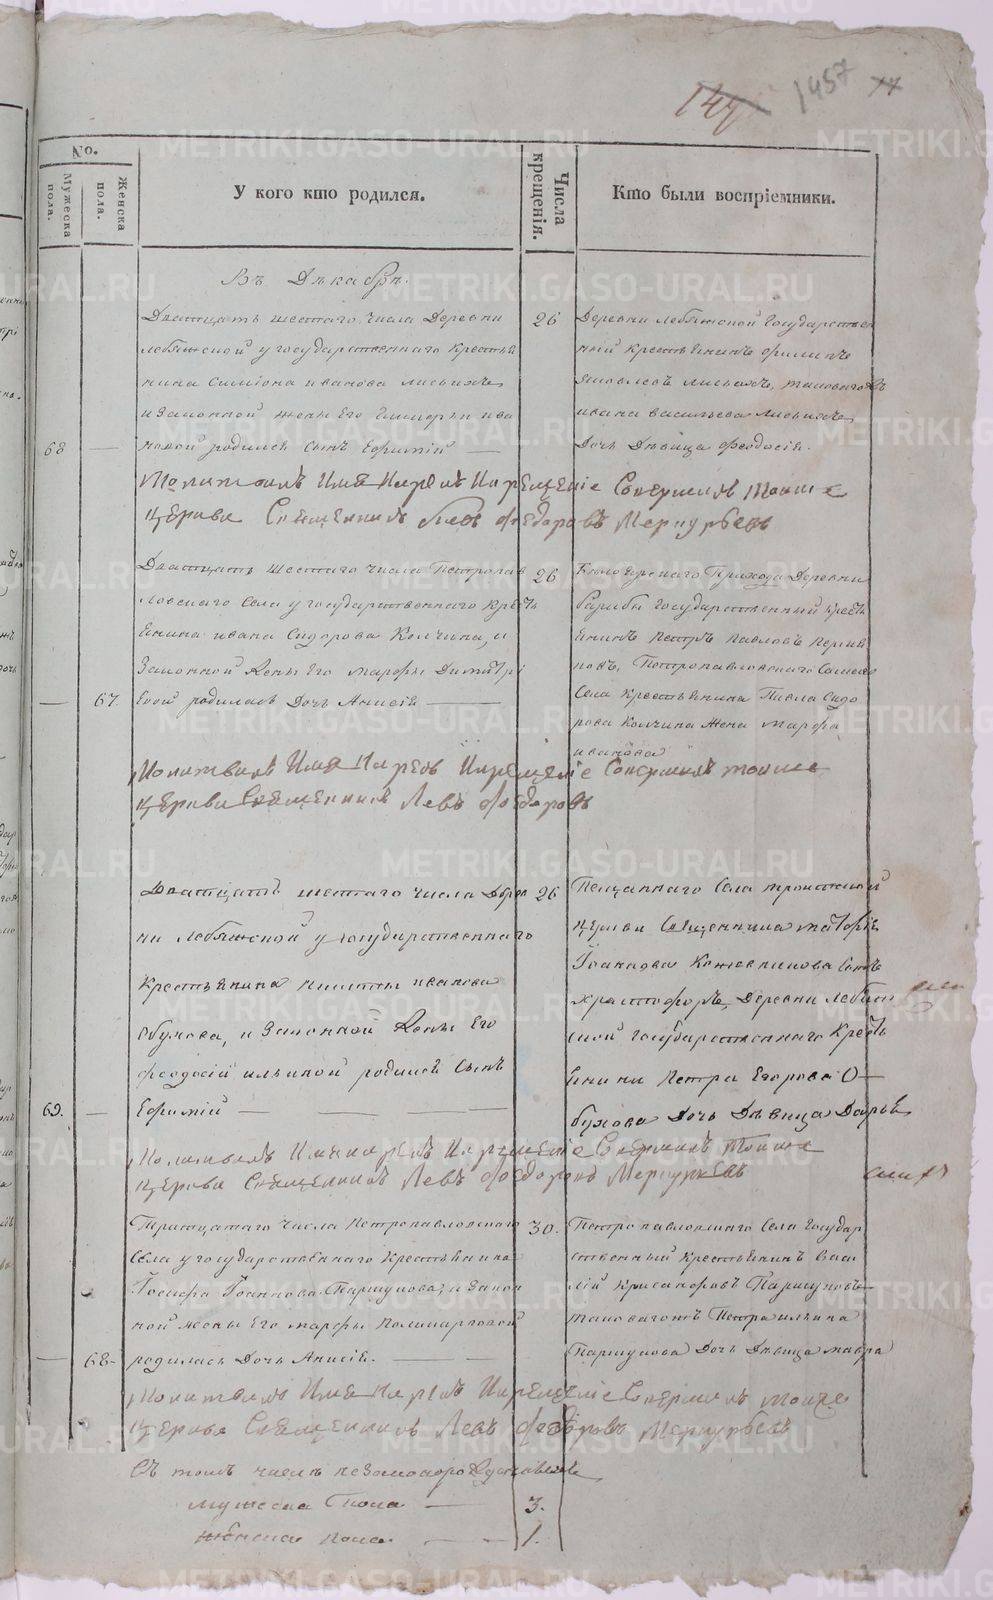 144
1457
77
No.
Мужеска пола.
Женска пола.
У кого кто родился.
Числа крещенія.
Кто были воспріемники.
Въ Декабре.
Дватцать шестаго числа Деревни
Лебяжской у государственнаго крестья
нина Симіона иванова
и законной жены Его ива
новой родился сынъ Ефимій
68
—
26
Деревни Лебяжской Государствен
ный крестьянинъ Филипъ
Яковлевъ
ивана васильева
Дочь Девица Феодосія.
Молитвилъ Имя Нарекъ И крещеніе Совершилъ тоиже
церкви Священникъ Левъ Федоровъ Меркурьевъ
Дватцать Шестаго числа Петропав
ловскаго Села у государственнаго Кресть
янина ивана Сидорова Колчина, и
Законной жены Его марфы Димитрі
евой родилась Дочь Анисія
—
67.
26
Прихода Деревни
Государственный кресть
янинъ Петръ Павловъ
новъ, Петропавловскаго
Села Крестьянина Павла Сидо
рова Колчина жена Марфа
иванова
Молитвилъ Имя Нарекъ И крещеніе Совершилъ тоиже
церкви Священникъ Левъ Федоровъ
Дватцать шестаго числа Дерев
ни Лебяжской у государственнаго
Крестьянина Никиты иванова
Обухова, и Законной жены Его
Феодосіи ильиной родился Сынъ
Ефимій
69.
—
26
Песчаннаго Села троитской
церкви Священника
Іоаннова Кожевникова Сынъ
Христофоръ, Деревни Лебяж
ской государственнаго Кресть
янина Петра Егорова О
бухова Дочь Девица Дарья
Молитвилъ Имя нарекъ И крещеніе Совершилъ Тоиже
церкви Священникъ Левъ Федоровъ Меркурьевъ
Тритцатаго числа Петропавловскаго
Села у государственнаго Крестьянина
Іосифа Іоаннова Паршукова, и Закон
ной жены Его марфы Поликарповой
родилась Дочь Анисія.
—
68
30.
Петропавловскаго Села Государ
ственный Крестьянинъ Васи
лій Крисанфовъ Паршуковъ
таковагожъ Петра ильина
Паршукова Дочь Девица мавра
Молитвилъ Имя Нарекъ И крещеніе Совершилъ тоиже
церкви Священникъ Левъ Федоровъ Меркурьевъ
Въ томъ числе незаконнорожденныхъ
мужеска Пола — 3.
женска пола — 1.
METRIKI.GASO-URAL.RU